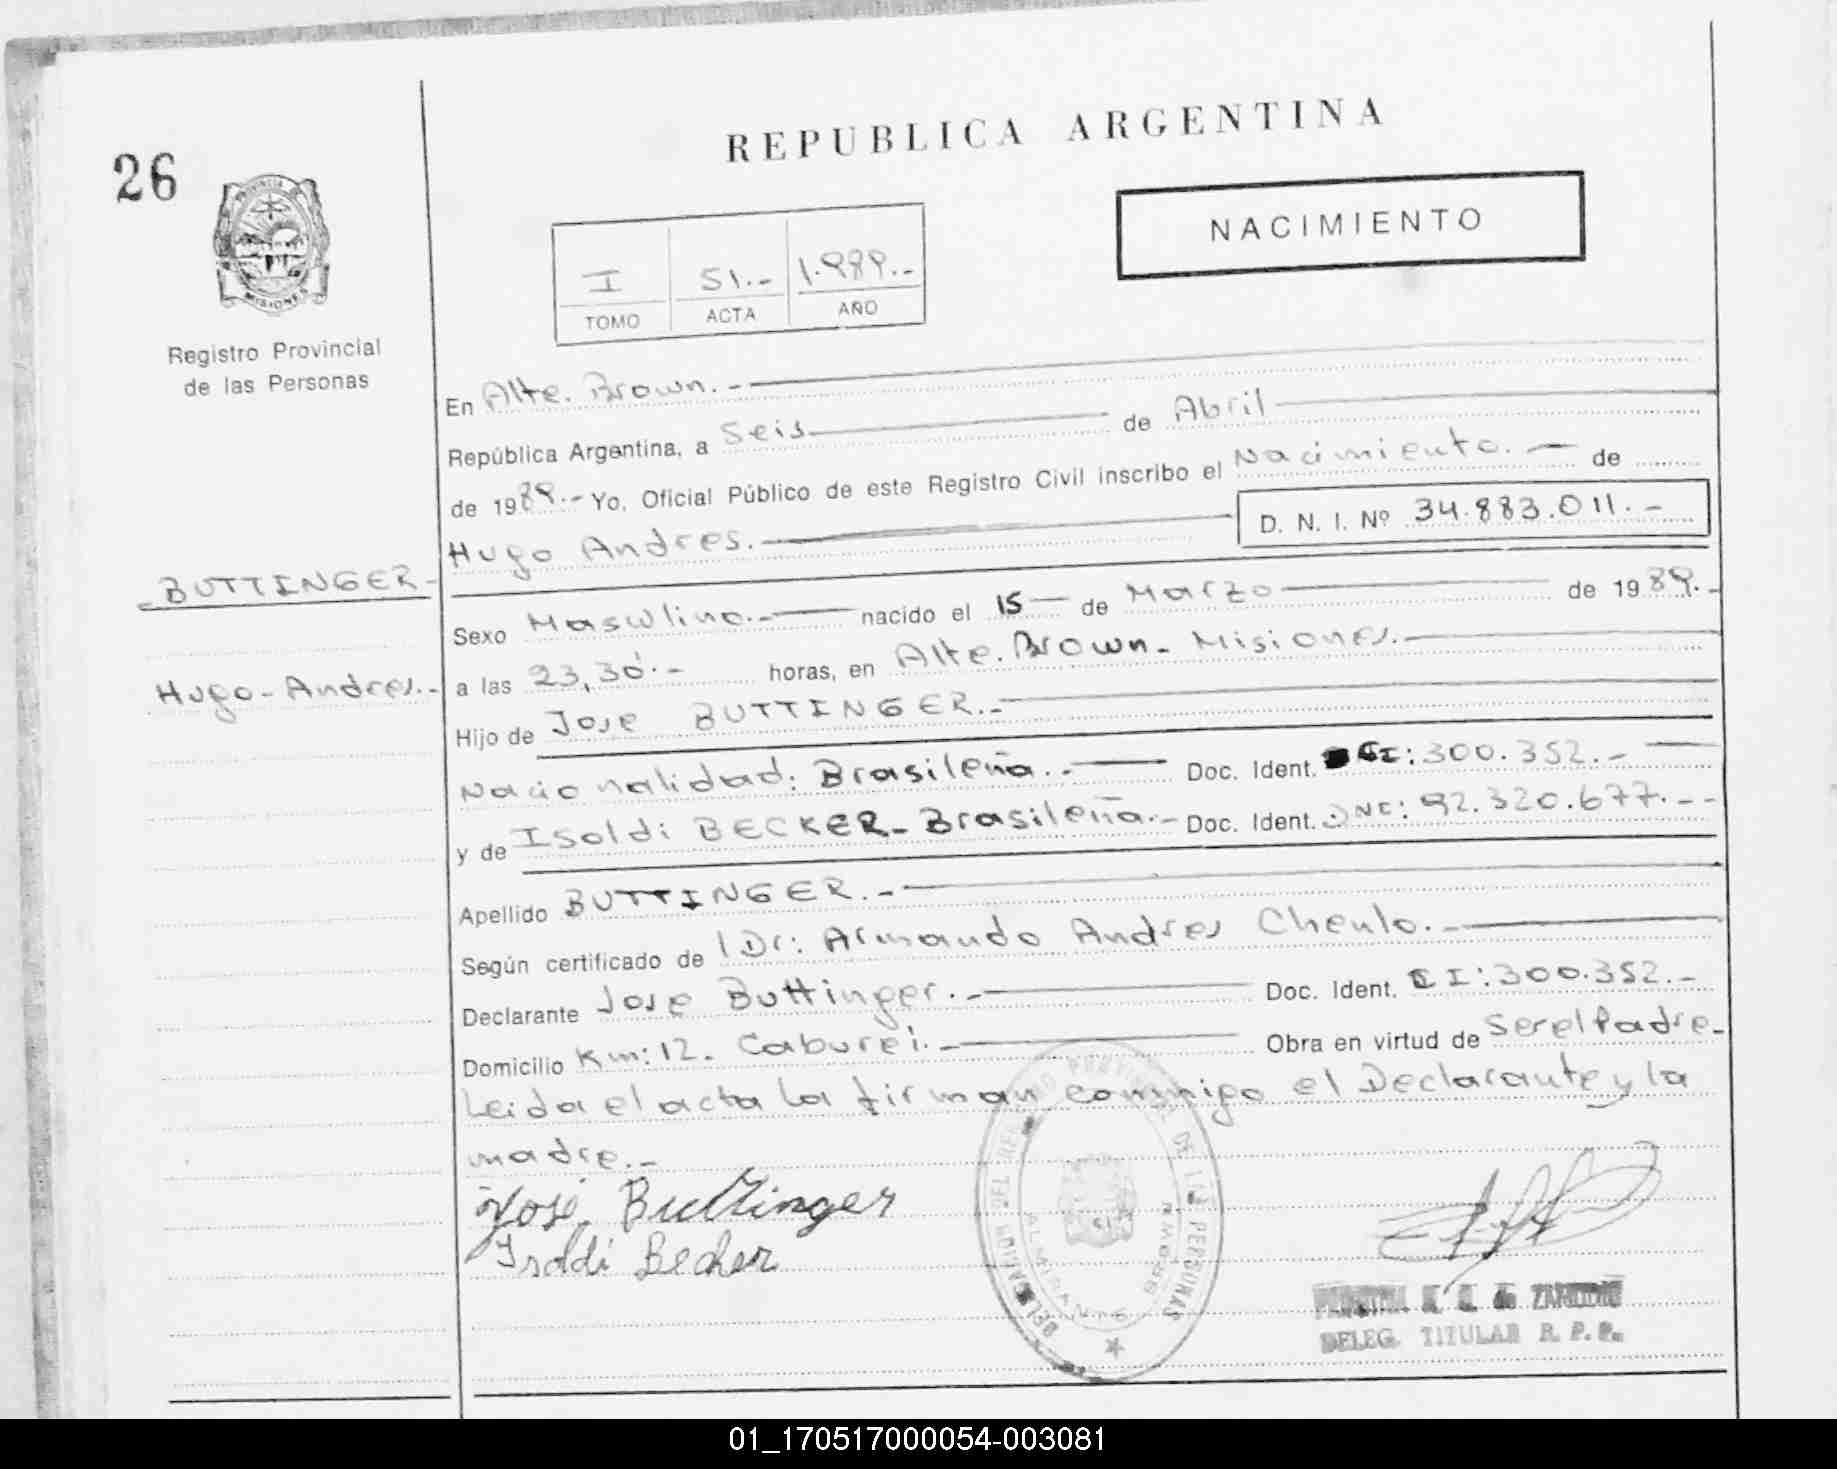 26
REPUBLICA ARGENTINA
NACIMIENTO
PROVINCIA DE
MISIONES
Registro Provincial
de las Personas
I 51.- 1.989.-
TOMO ACTA AÑO
En Alte. Brown.-
República Argentina, a Seis de Abril
de 1989.- Yo, Oficial Público de este Registro Civil inscribo el Nacimiento.- de
Hugo Andres.- D. N. I. Nº 34.883.011.-
BUTTINGER-
Hugo-Andres.-
Sexo Masculino.- nacido el 15 de Marzo de 1989.-
a las 23,30.- horas, en Alte. Brown - Misiones.-
Hijo de Jose BUTTINGER.-
Nacionalidad: Brasileña.- Doc. Ident. CI: 300.352.-
y de Isoldi BECKER - Brasileña.- Doc. Ident. DNI: 92.320.677.--
Apellido BUTTINGER.-
Según certificado de Dr: Armando Andres Chenlo.-
Declarante Jose Buttinger.- Doc. Ident. CI: 300.352.-
Domicilio Km: 12. Caburei.- Obra en virtud de Ser el Padre.-
Leida el acta la firman conmigo el Declarante y la
madre.-
José Buttinger
Isoldi Becher
DELEGACION DEL REGISTRO PROVINCIAL DE LAS PERSONAS
ALMIRANTE BROWN
DELEG. TITULAR R. P. P.
01_170517000054-003081